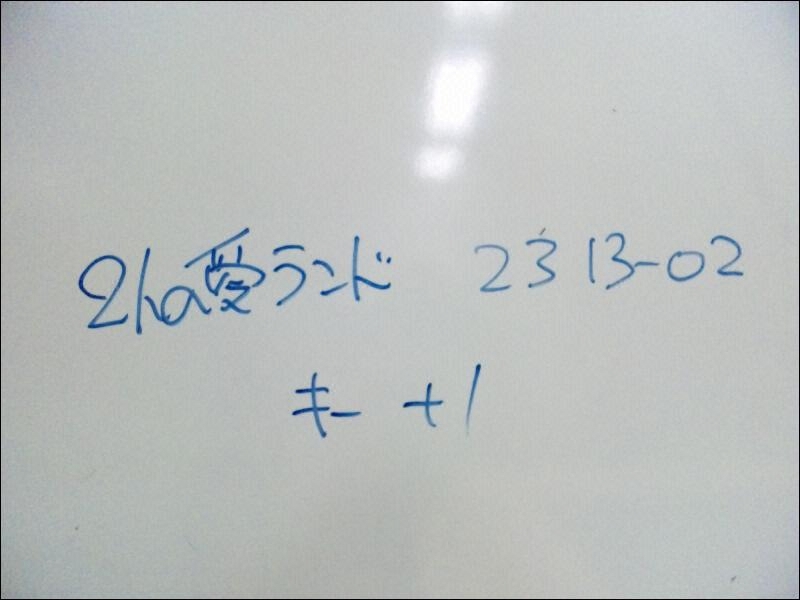 2ha愛ランド 2313-02
キー +1